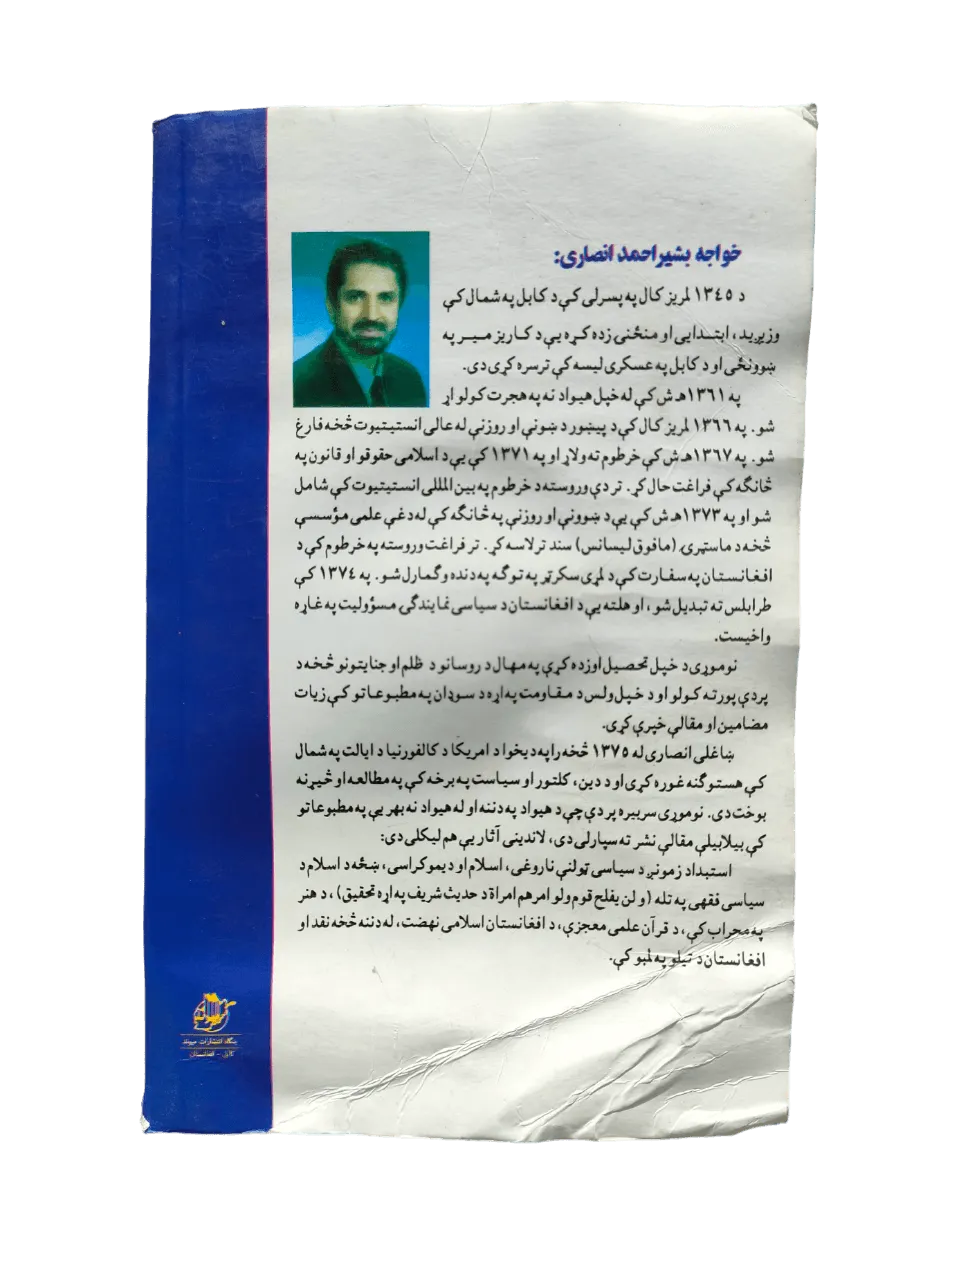 خواجه بشیراحمد انصاری:
د ۱۳۴۵ لمریز کال په پسرلی کې د کابل په شمال کې
وزیږید، ابتـدایی او منځنی زده کـړه یې د کاریز میـر په
ښوونځی او د کابل په عسکری لیسه کې ترسره کړی دی.
په ۱۳۶۱هـ ش کې له خپل هیواد نه په هجرت کولو اړ
شو. په ۱۳۶۶ لمریز کال کې د پیښور د ښونې او روزنې له عالی انستیتیوت څخه فارغ
شو. په ۱۳۶۷هـ ش کې خرطوم ته ولاړ او په ۱۳۷۱ کې یې د اسلامی حقوقو او قانون په
څانګه کې فراغت حال کړ. تر دې وروسته د خرطوم په بین المللی انستیتیوت کې شامل
شو او په ۱۳۷۳هـ ش کې یې د ښوونې او روزنې په څانګه کې له دغې علمی مؤسسې
څخه د ماسټرۍ (مافوق لیسانس) سند ترلاسه کړ. تر فراغت وروسته په خرطوم کې د
افغانستان په سفارت کې د لمړی سکرټر په توګه په دنده وګمارل شو. په ۱۳۷٤ کې
طرابلس ته تبدیل شو، او هلته یې د افغانستان د سیاسی نمایندګی مسؤولیت په غاړه
واخیست.
نوموړی د خپل تحصیل او زده کړې په مهال د روسانو د ظلم او جنایتونو څخه د
پردې پورته کولو او د خپل ولس د مقاومت په اړه د سوډان په مطبوعاتو کې زیات
مضامین او مقالې خپرې کړی.
ښاغلی انصاری له ۱۳۷۵ څخه را په دیخوا د امریکا د کالفورنیا د ایالت په شمال
کې هستوګنه غوره کړی او د دین، کلتور او سیاست په برخه کې په مطالعه او څیړنه
بوخت دی. نوموړی سربیره پر دې چې د هیواد په دننه او له هیواد نه بهر یې په مطبوعاتو
کې بیلابیلې مقالې نشر ته سپارلی دی، لاندینی آثار یې هم لیکلی دی:
استبداد زمونږ د سیاسی ټولنې ناروغی، اسلام او دیموکراسی، ښځه د اسلام د
سیاسی فقهی په تله (و لن یفلح قوم ولو امرهم امراة د حدیث شریف په اړه تحقیق)، د هنر
په محراب کې، د قرآن علمی معجزې، د افغانستان اسلامی نهضت، له دننه څخه نقد او
افغانستان د تیلو په لمبو کې.
بنگاه انتشارات میوند
کابل - افغانستان